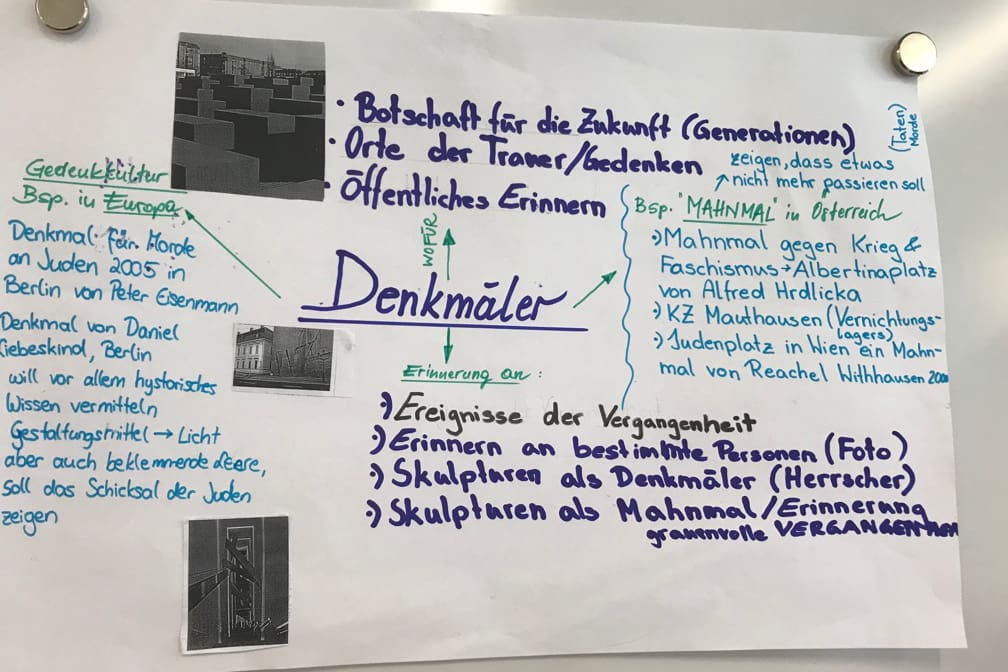 • Botschaft für die Zukunft (Generationen)
• Orte der Trauer/Gedenken
• Öffentliches Erinnern
(Taten)
Morde
zeigen, dass etwas
nicht mehr passieren soll
Bsp. "MAHNMAL" in Österreich
•) Mahnmal gegen Krieg &
Faschismus → Albertinaplatz
von Alfred Hrdlicka
•) KZ Mauthausen (Vernichtungs-
lagers)
•) Judenplatz in Wien ein Mahn-
mal von Reachel Withhausen
Gedenkkultur
Bsp. in Europa
Denkmal für Morde
an Juden 2005 in
Berlin von Peter Eisenmann
Denkmal von Daniel
Liebeskind, Berlin
will vor allem hystorisches
Wissen vermitteln
Gestaltungsmittel → Licht
aber auch beklemmerde Leere,
soll das Schicksal der Juden
zeigen
WOFÜR
Denkmäler
Erinnerung an:
•) Ereignisse der Vergangenheit
•) Erinnern an bestimmte Personen (Foto)
•) Skulpturen als Denkmäler (Herrscher)
•) Skulpturen als Mahnmal/Erinnerung
grauenvolle VERGANGENHEIT